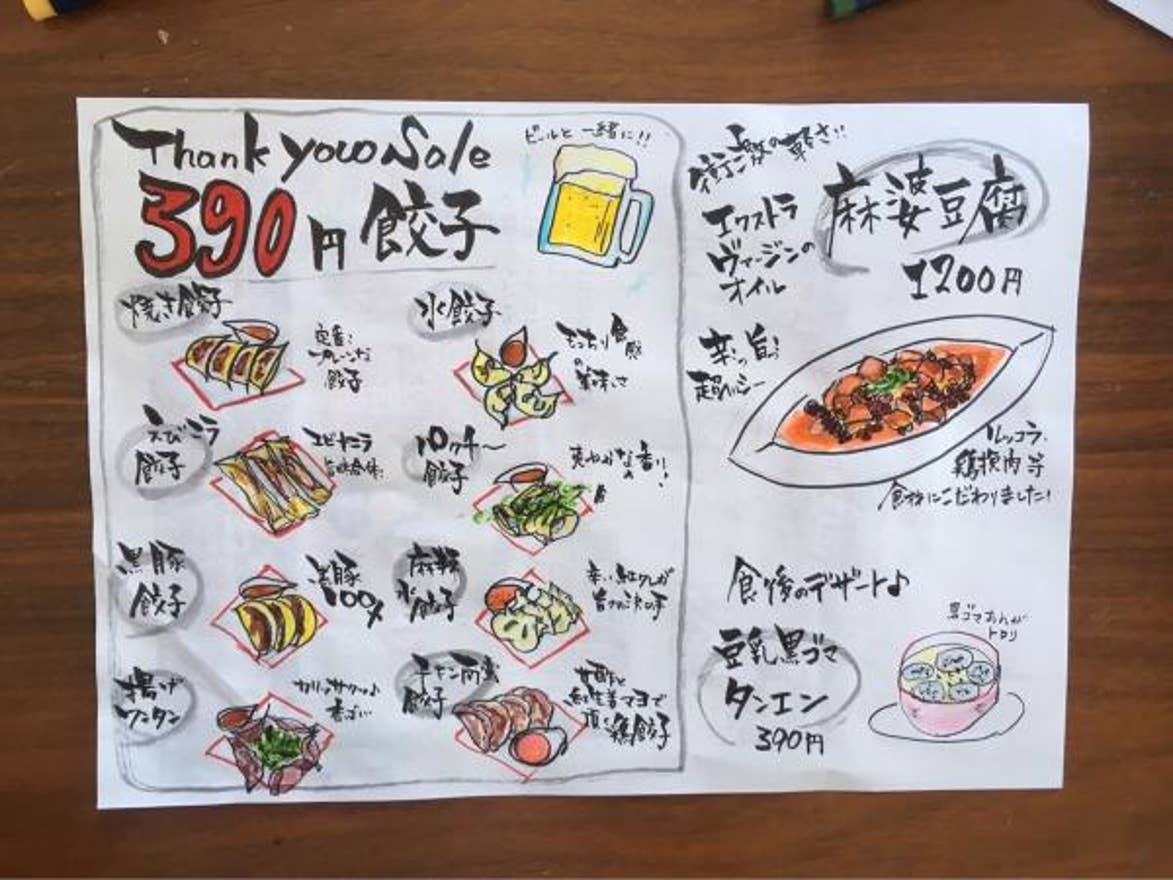 Thank you Sale
390円 餃子
ビールと一緒に!!
焼き餃子
定番!
プレーンな
餃子
水餃子
もっちり食感
の
美味しさ
えびニラ
餃子
エビとニラ
パクチー
餃子
爽やかな香り!
黒豚
餃子
黒豚
100%
麻辣
水餃子
辛い
揚げ
ワンタン
カリッサクッ♪
香ばい
チャン南蛮
餃子
甘酢と
紅生姜マヨで
頂く鶏餃子
衝撃の軽さ!!
エクストラ
ヴァージンの
オイル
麻婆豆腐
1200円
辛っ旨っ
超ヘルシー
ルッコラ、
鶏挽肉等
食材にこだわりました!
食後のデザート♪
豆乳黒ゴマ
タンエン
390円
黒ゴマあんが
トロリ